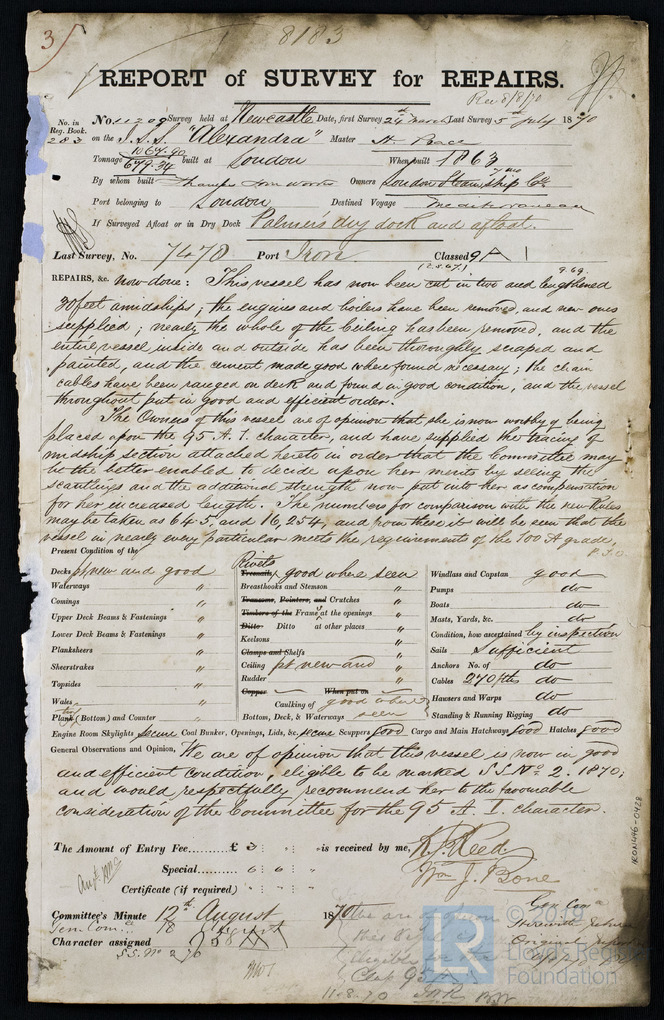 3/
8183
REPORT of SURVEY for REPAIRS.
Rec 8/8/70
No. in Reg. Book. 283
No. 11209 Survey held at Newcastle Date, first Survey 24th March Last Survey 5th July 1870
on the S.S.S. "Alexandra" Master
Tonnage 1064.90 679.34 built at London When built 1863
By whom built Thames Iron Works Owners London Steam ship Co
Port belonging to London Destined Voyage Mediterranean
If Surveyed Afloat or in Dry Dock Palmer's dry dock and afloat.
Last Survey, No. 7478 Port Iron Classed 9 A 1
(2.8.67.) 9.69.
REPAIRS, &c. now done: This vessel has now been cut in two and lengthened
30 feet amidships; the engines and boilers have been removed, and new ones
supplied; nearly the whole of the Ceiling has been removed, and the
entire vessel inside and outside has been thoroughly scraped and
painted, and the cement made good where found necessary; the chain
cables have been ranged on deck and found in good condition, and the vessel
throughout put in good and efficient order.
The Owners of this vessel are of opinion that she is now worthy of being
placed upon the 95 A. 1. character, and have supplied the tracing of
midship section attached hereto in order that the Committee may
be the better enabled to decide upon her merits by seeing the
scantlings and the additional strength now put into her as compensation
for her increased length. The numbers for comparison with the new Rules
may be taken as 645, and 16,254, and from these it will be seen that the
vessel in nearly every particular meets the requirements of the 100 A grade.
P.T.O.
Present Condition of the
Decks pt new and good
Waterways "
Comings "
Upper Deck Beams & Fastenings "
Lower Deck Beams & Fastenings "
Planksheers "
Sheerstrakes "
Topsides "
Wales "
Plank (Bottom) and Counter "
Rivets
Treenails good where seen
Breasthooks and Stemson "
Transoms, Pointers, and Crutches "
Timbers of the Frame at the openings "
Ditto Ditto at other places "
Keelsons "
Clamps and Shelfs "
Ceiling pt new and "
Rudder "
Copper When put on
Caulking of Bottom, Deck, & Waterways good where seen
Windlass and Capstan good
Pumps do
Boats do
Masts, Yards, &c. do
Condition, how ascertained by inspection
Sails Sufficient
Anchors No. of do
Cables 270 fths do
Hawsers and Warps do
Standing & Running Rigging do
Engine Room Skylights secure Coal Bunker, Openings, Lids, &c. secure Scuppers good Cargo and Main Hatchways good Hatches good
General Observations and Opinion, We are of opinion that this vessel is now in good
and efficient condition, eligible to be marked S.S. No. 2. 1870;
and would respectfully recommend her to the favourable
consideration of the Committee for the 95 A. 1. character.
The Amount of Entry Fee £ 3 : " : " is received by me,
Special 6 : 6 : "
Certificate (if required) " : " : "
Wm J. Bone
Committee's Minute 12th August 1870
18 August
Character assigned
S.S. No 2
11-8-70
IRON496-0428
© 2019
LR
Lloyd's Register
Foundation